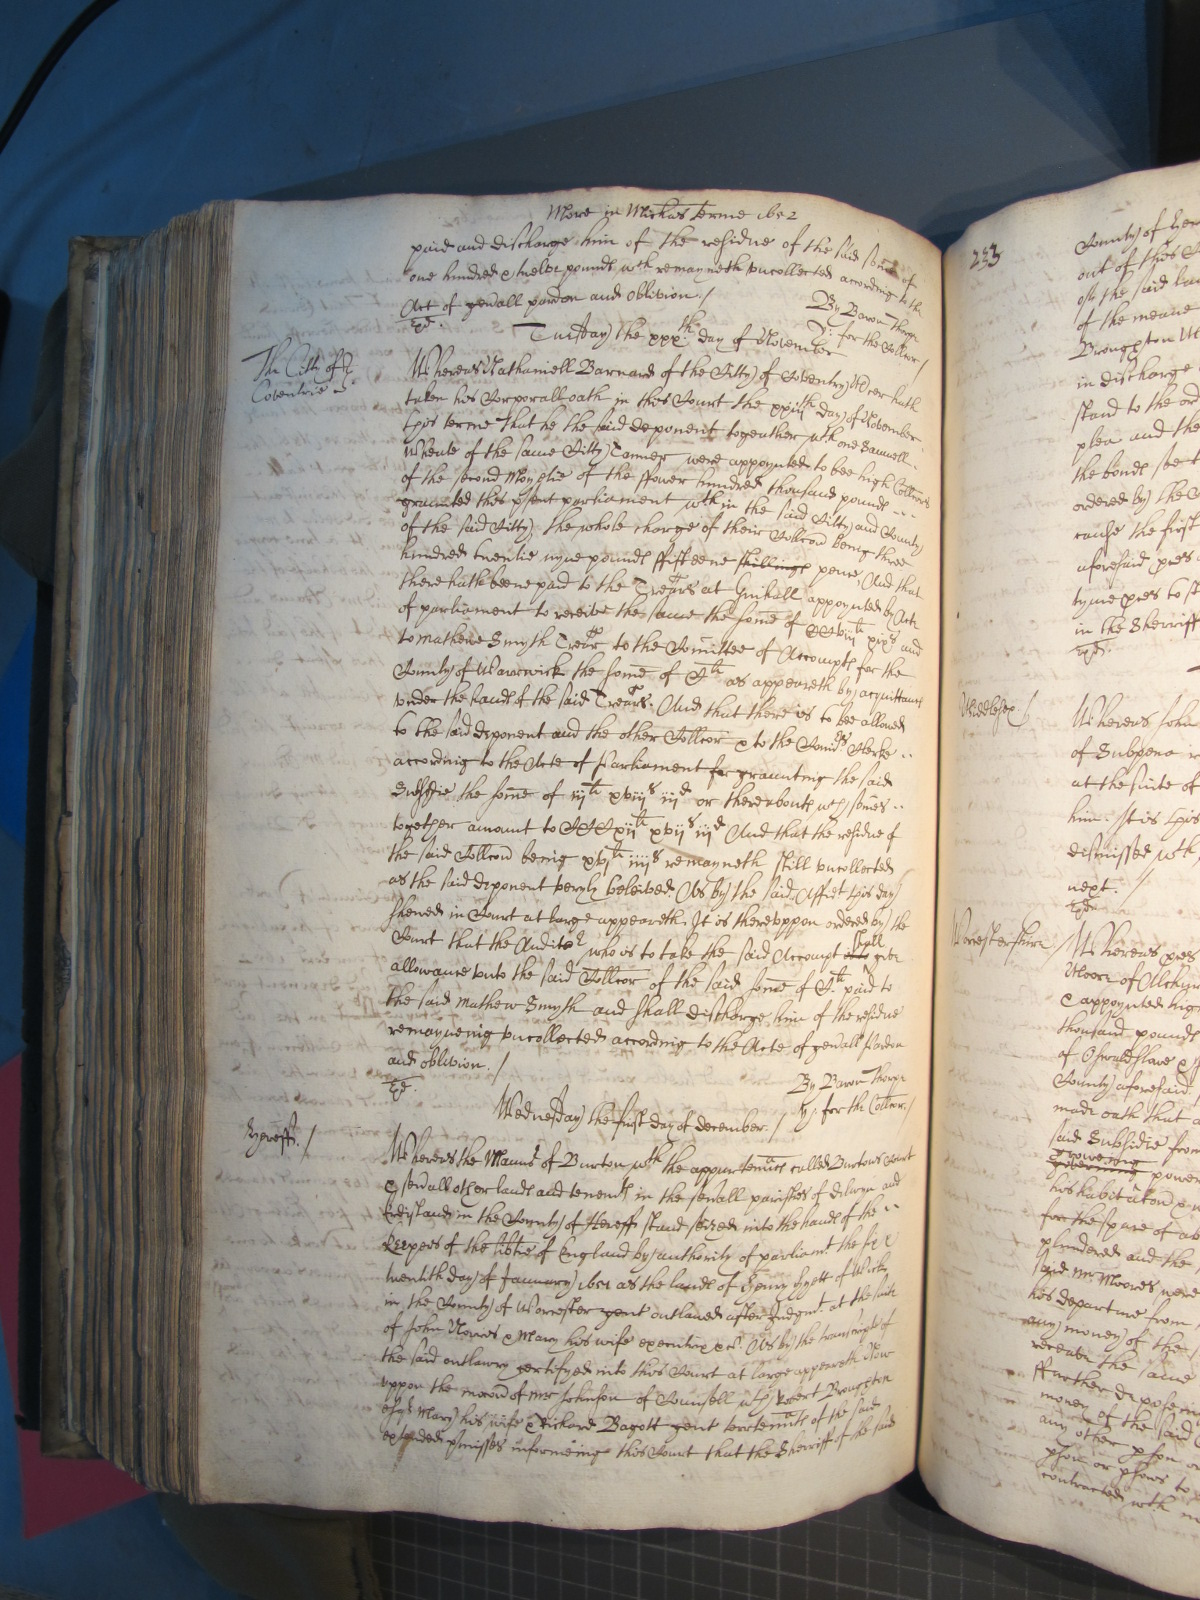 More in Michas terme 1652
paid and discharge him of the residue of the said some of
one hundred & twelve pounds wch remayneth uncollected according to th
Act of gen̄all pardon and oblivion ./
By Baron Thorpe
Ex:
y: for the Collcor /
Tuesday the xxxth day of November
The Citty of
Coventrie
Whereas Nathaniell Barnard of the Citty of Coventry Mercer hath
taken his Corporall oath in this Court the xxiijth day of November
this terme That he the said deponent togeather wth one Samuell
Wheate of the same Citty Tanner were appoynted to bee high Collcors
of the second Moyetie of the ffower hundred thousand pounds
graunted this pr̄sent parliament wthin the said Citty and County
of the said Citty, the whole charge of their Collcon being three
hundred twentie nyne pounds fifteene shillings pence, And that
there hath beene paid to the Treārs at Guihall appoynted by Act
of parliament to receive the same the some of CCCviijth xixs and
to Mathew Smyth Treār to the Comittee of Accompts for the
County of Warrwick the some of Cth as appeareth by acquittance
under the hands of the said Treārs. And that there is to bee allowed
to the said deponent and the other Collcor & to the Comrs Clerke
according to the Acte of Parliament for graunting the said
Subsidie the some of iijth xviijs iijd or thereabouts wch somes
together amount to CCCxijth xvijs iijd And that the residue of
the said Collcon being xvjth iiijs remayneth still uncollected
as the said deponent veryly beleived. As by the said Affidt this day
shewed in Court at large appeareth. It is thereuppon ordered by the
Court that the Auditor who is to take the said Accompt shall give
allowance unto the said Collcor of the said some of Cth paid to
the said Mathew Smyth and shall discharge him of the residue
remayneing uncollected according to the Acte of gen̄all Pardon
and oblivion. /
By Baron Thorpe
Ex:
y: for the Collcor. /
Wednesday the first day of December. /
Hereff. /
Whereas the Mannor of Burton wth the appurtenn̄cs called Burtons Court
& sev̄all other lands and tenemts in the sev̄all parishes of Dilwyn and
Erdisland in the County of Hereff stand seized into the hands of the
Keepers of the lib̄tie of England by authority of parliamt the six
twentith day of January 1651 as the lands of Henry Hyett of
in the County of Worcester gent outlawed after Judgmt. at the suite
of John Norris & Mary his wife executrix &c. As by the transcripte of
the said outlawry certifyed into this Court at large appeareth Now
uppon the mōcon of Mr Johnson of Counsell wth Robert Broughton
Esqr Mary his wife & Richard Bagott gent terrten̄nts of the said
extended p̄misses informeing this Court that the Sherriff of the said
223
County of Her
out of this
of the said la
of the meane
Broughton
in discharge
stand to the ord
plea and the
the bonds
ordered by the
cause the first
aforesaid pres
tyme pres to st
in the Sherriff
Middlesex
Whereas John
of Subpena
at the suite of
him. It is this
dismissed wth
next. /
Worcestershire /
Whereas
Moore of
appoynted high
thousand pounds
of Oswaldslawe &
County aforesaid
made oath that
said Subsidie from
power
his habitac̄on
for the space of
plundered and the
said Mr Moores were
his departure from
any money of the
receave the same
ffurther deposeing
money of the said
any other p̄son or
p̄son or p̄sons to
contracted wth